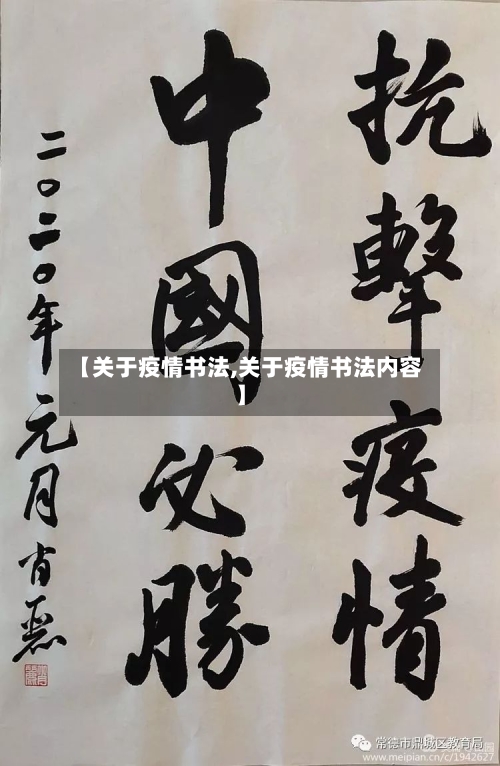 抗擊疫情
中國必勝
二〇二〇年元月肖丽
【关于疫情书法,关于疫情书法内容
】
常德市鼎城区教育局
www.meipian.cn/c/1942627